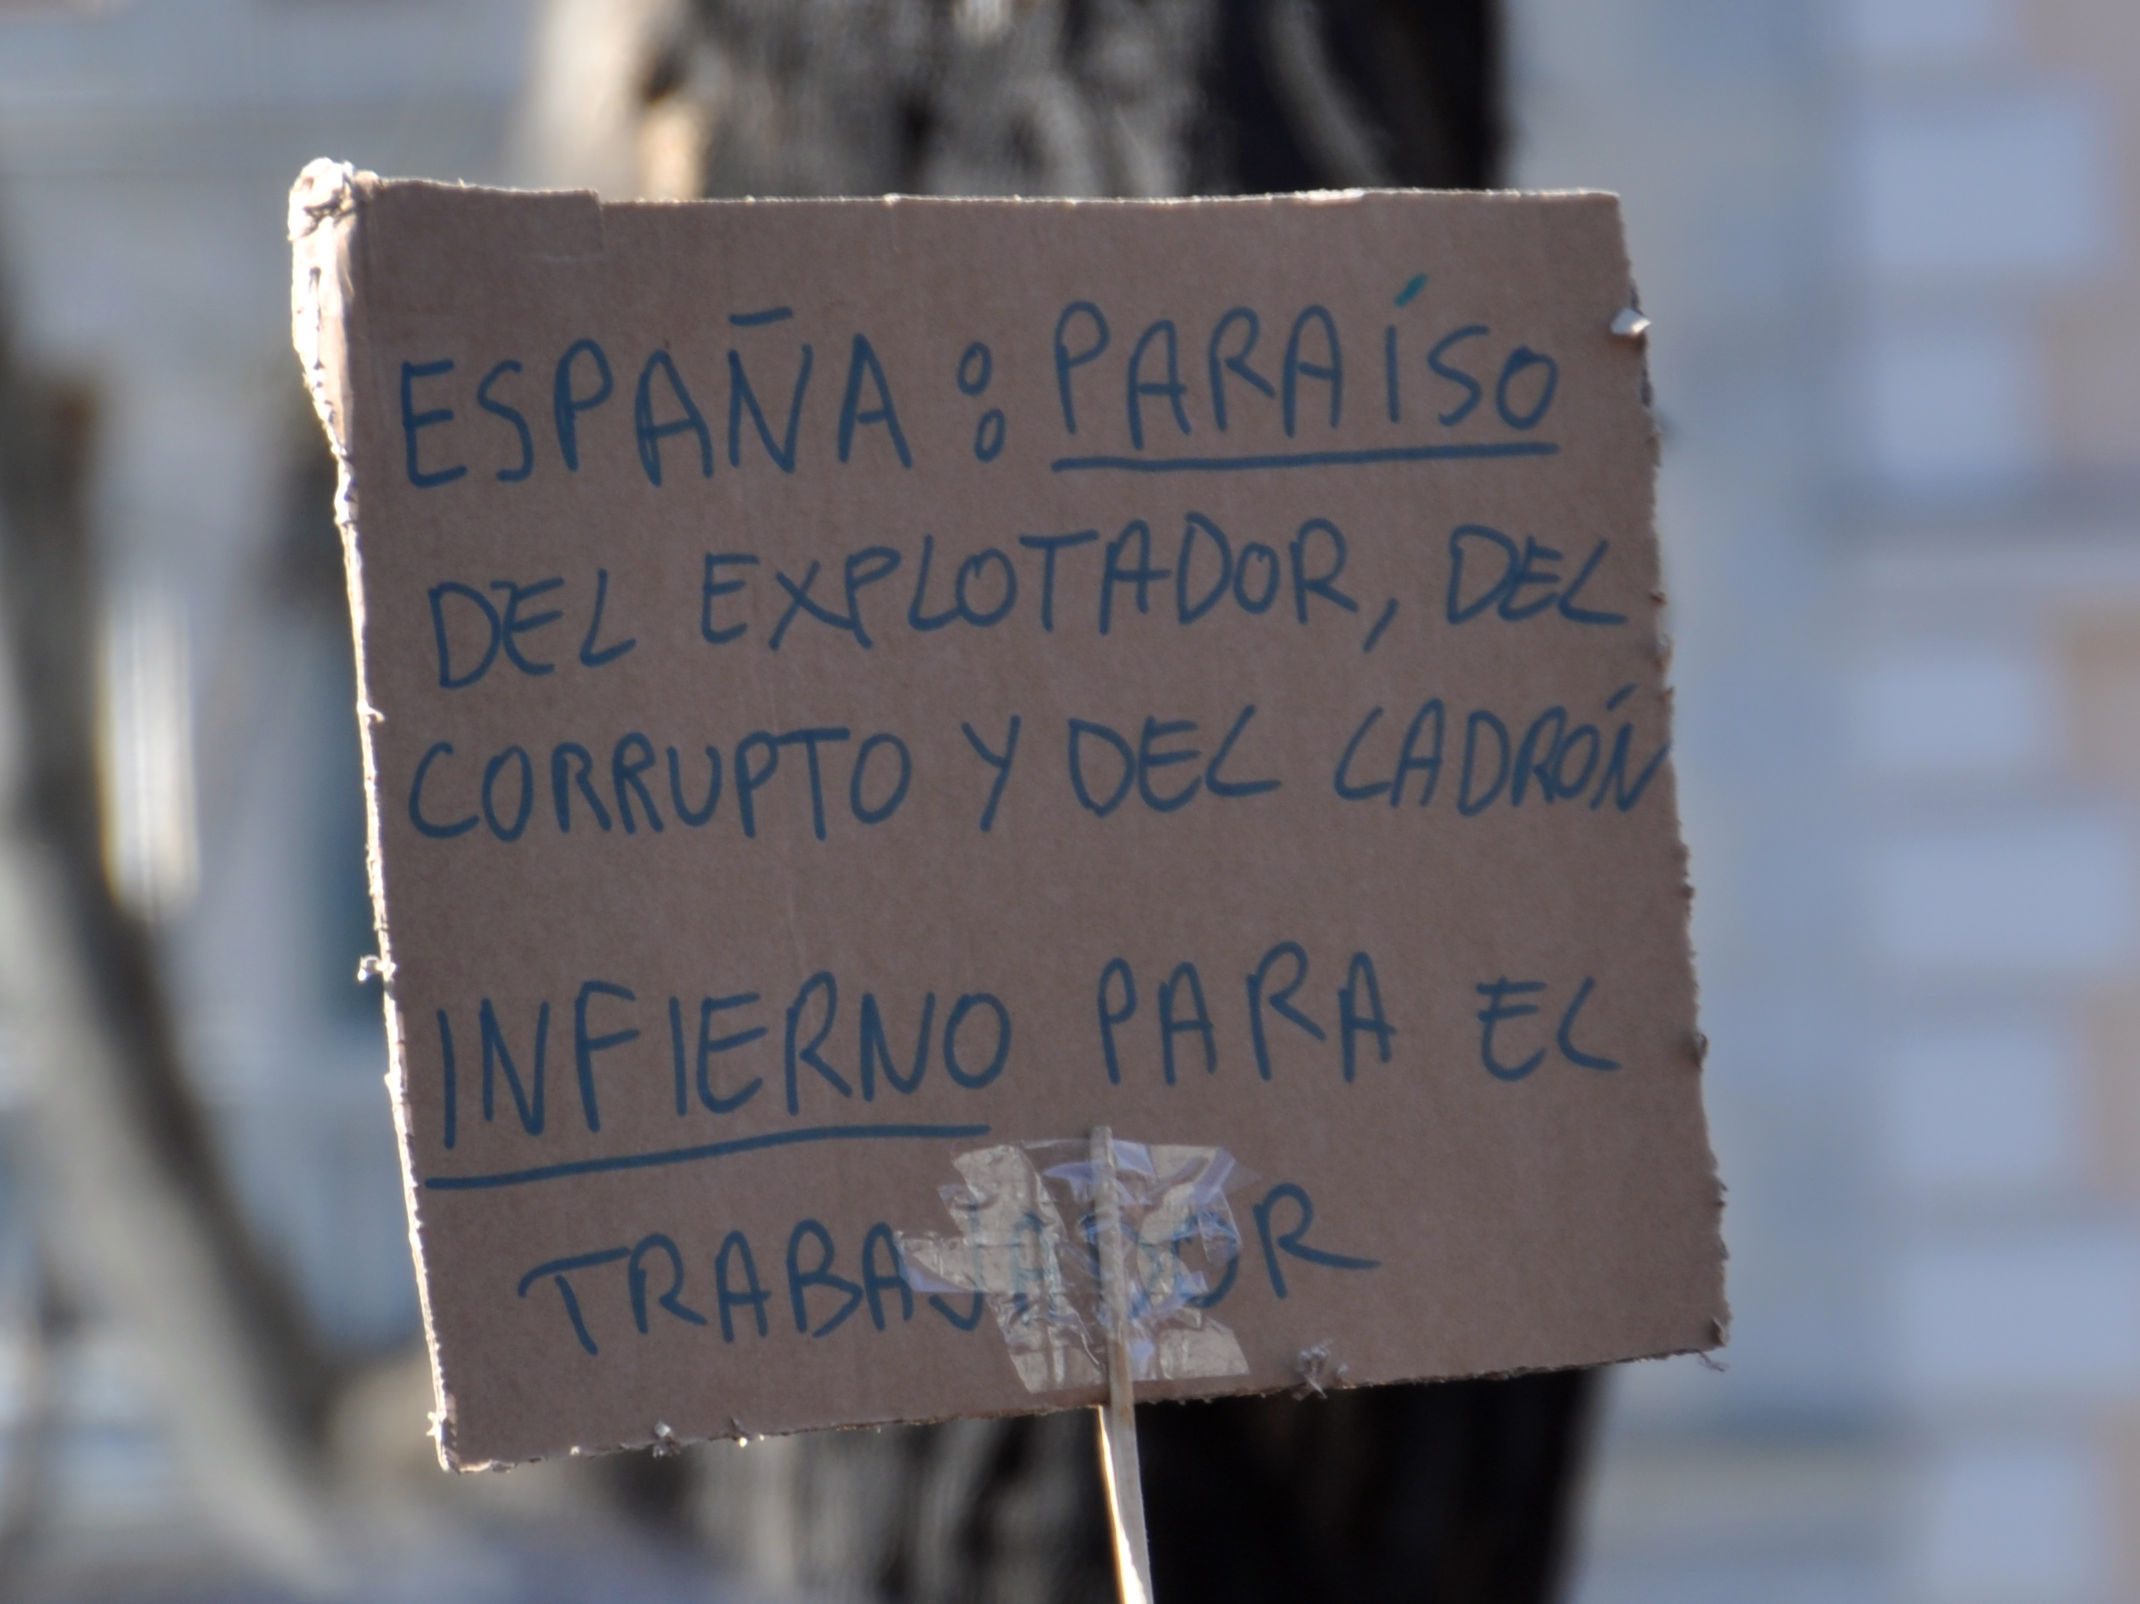 ESPAÑA: PARAÍSO
DEL EXPLOTADOR, DEL
CORRUPTO Y DEL LADRÓN
INFIERNO PARA EL
TRABAJADOR